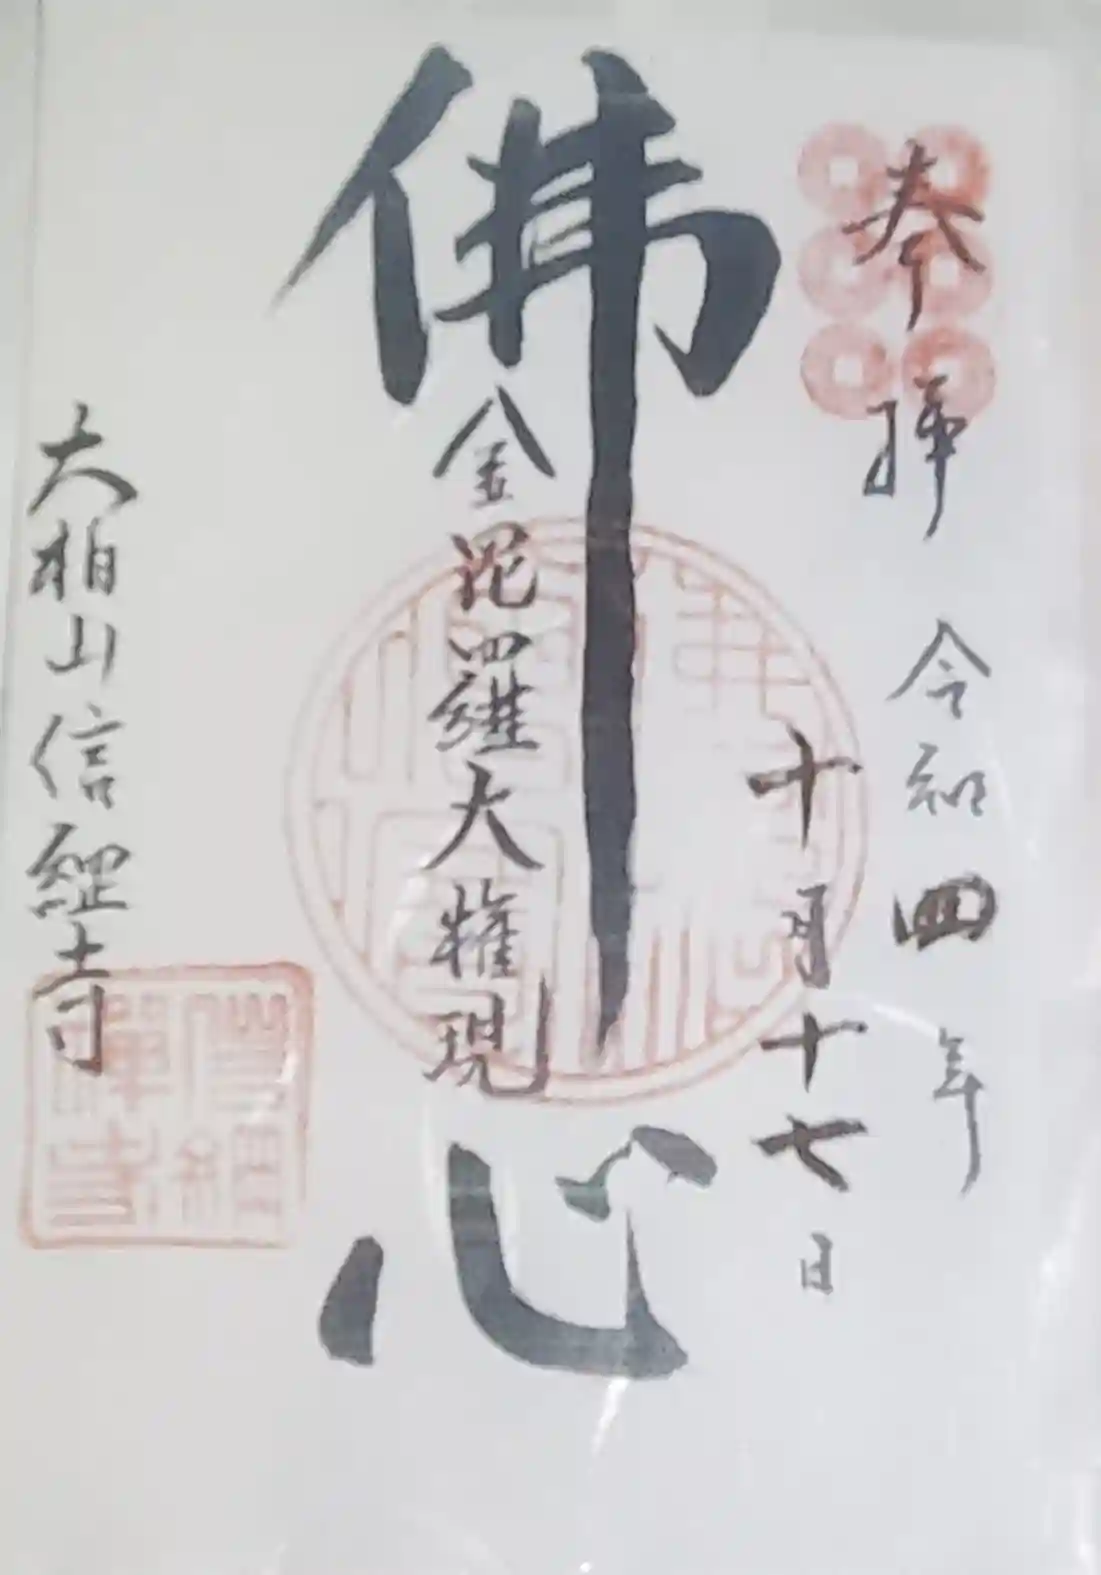 奉拝
令和四年
十月十七日
佛心
金毘羅大権現
大柏山信經寺